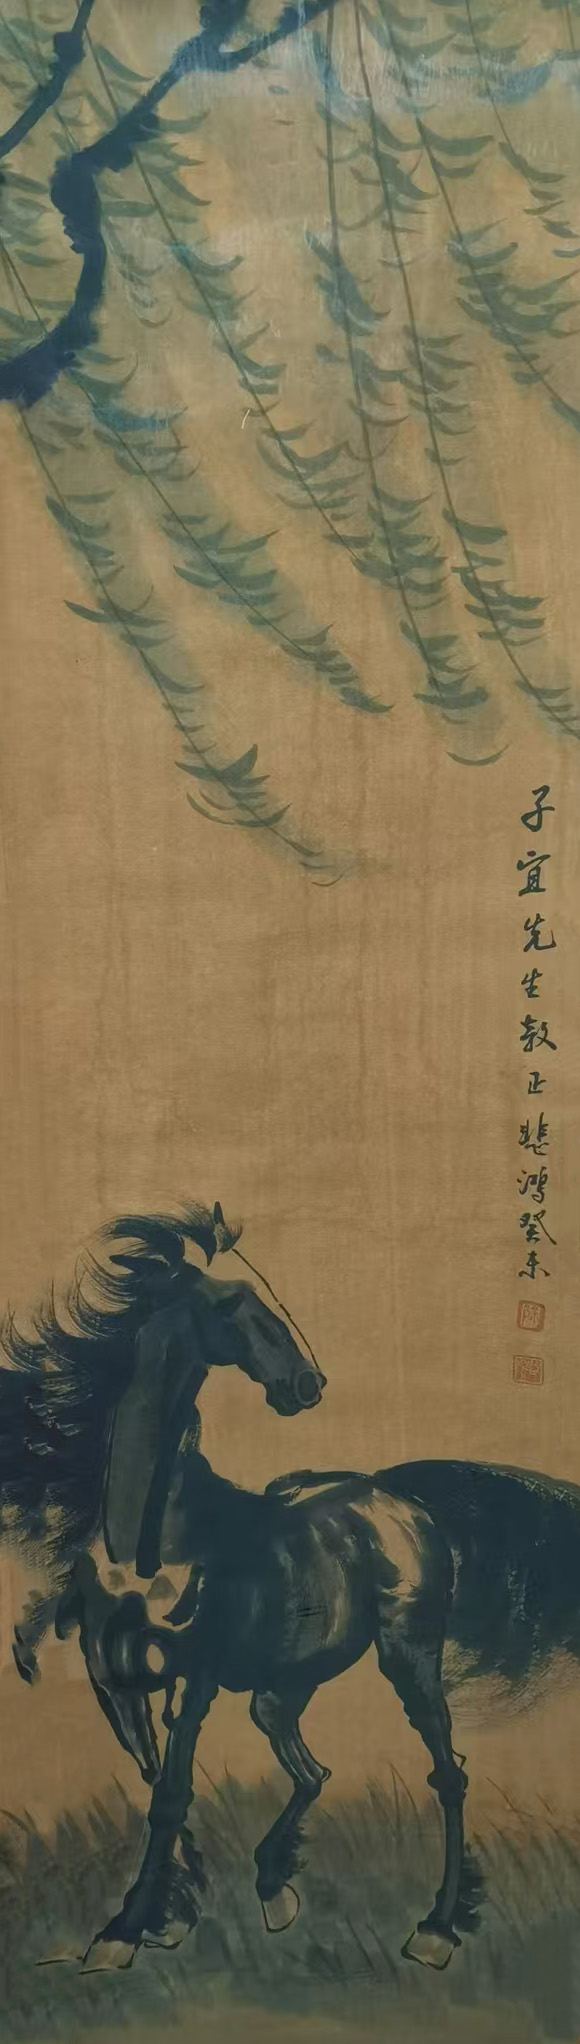 子宜先生教正悲鸿癸未